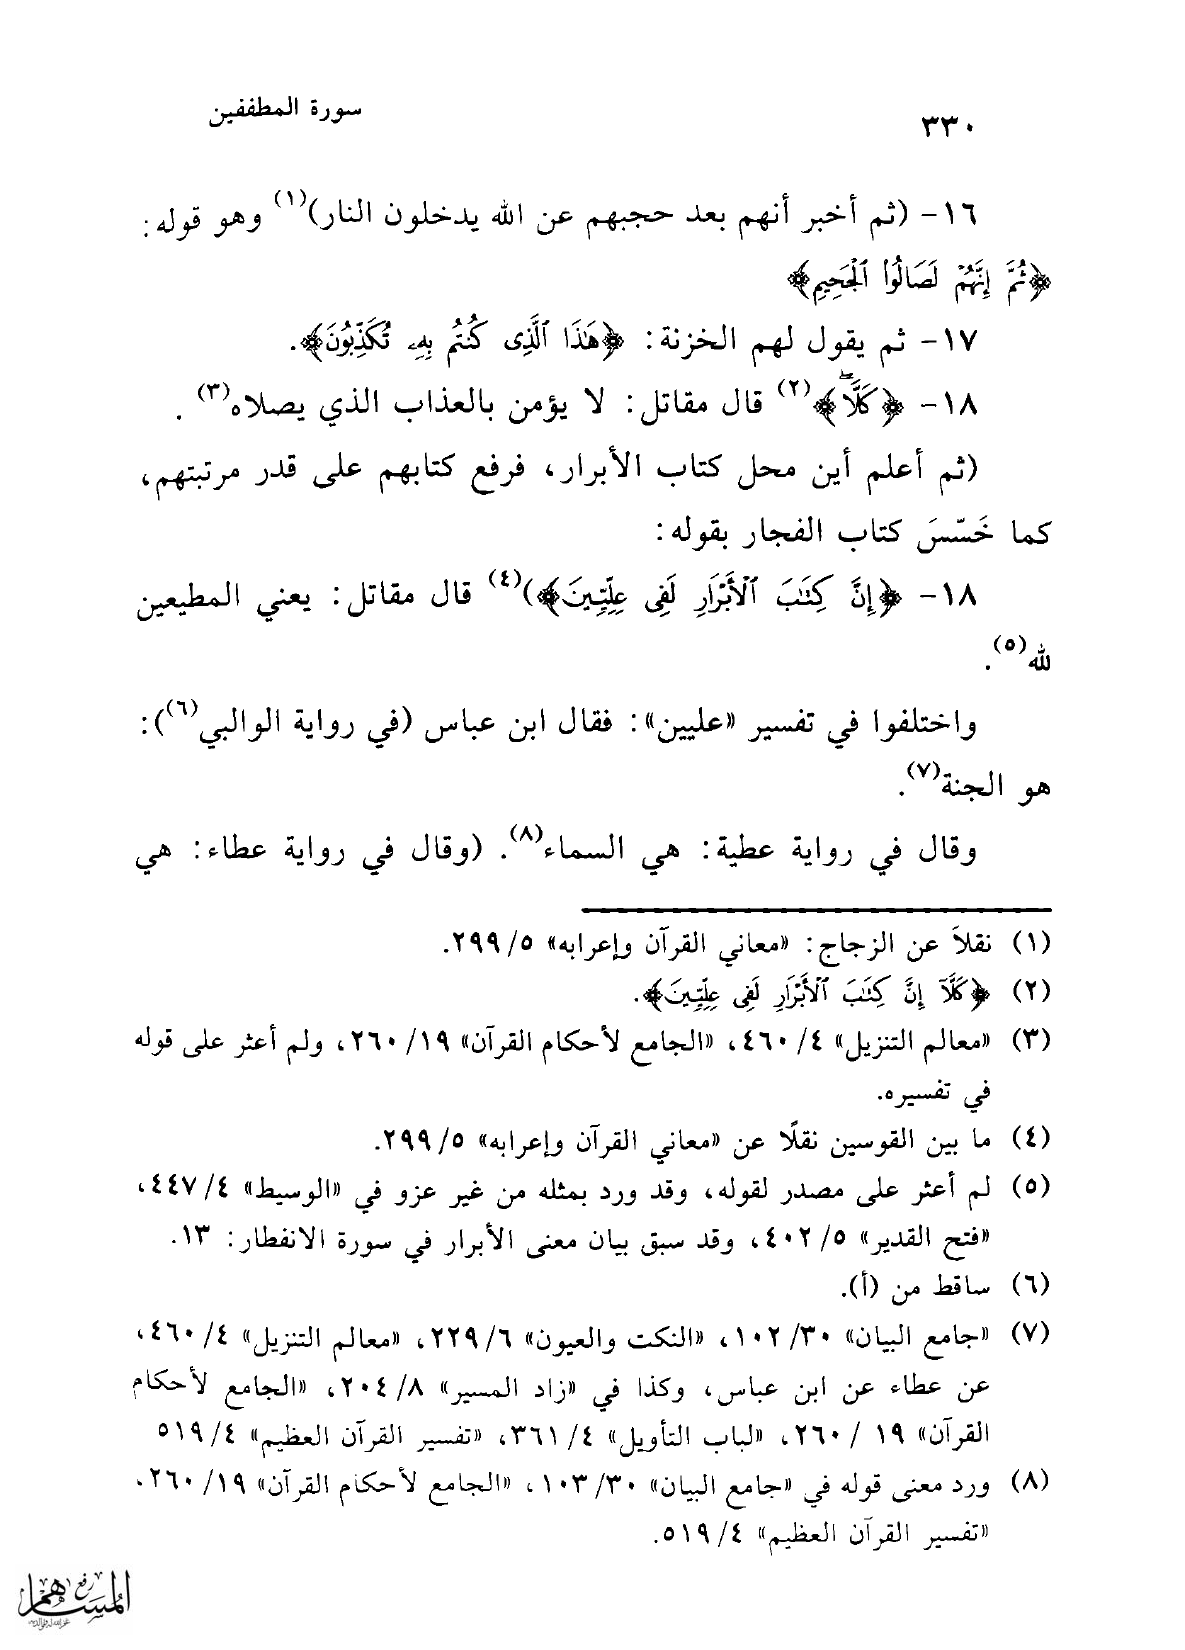 سورة المطففين
٣٣٠
١٦- (ثم أخبر أنهم بعد حجبهم عن الله يدخلون النار)(١) وهو قوله:
﴿ثُمَّ إِنَّهُمْ لَصَالُوا۟ ٱلْجَحِيمِ﴾
١٧- ثم يقول لهم الخزنة: ﴿هَٰذَا ٱلَّذِى كُنتُم بِهِۦ تُكَذِّبُونَ﴾.
١٨- ﴿كَلَّآۖ﴾(٢) قال مقاتل: لا يؤمن بالعذاب الذي يصلاه(٣) .
(ثم أعلم أين محل كتاب الأبرار، فرفع كتابهم على قدر مرتبتهم،
كما خَسّسَ كتاب الفجار بقوله:
١٨- ﴿إِنَّ كِتَٰبَ ٱلْأَبْرَارِ لَفِى عِلِّيِّينَ﴾)(٤) قال مقاتل: يعني المطيعين
لله(٥).
واختلفوا في تفسير «عليين»: فقال ابن عباس (في رواية الوالبي(٦)):
هو الجنة(٧).
وقال في رواية عطية: هي السماء(٨). (وقال في رواية عطاء: هي
(١) نقلاً عن الزجاج: «معاني القرآن وإعرابه» ٥/ ٢٩٩.
(٢) ﴿كَلَّآ إِنَّ كِتَٰبَ ٱلْأَبْرَارِ لَفِى عِلِّيِّينَ﴾.
(٣) «معالم التنزيل» ٤/ ٤٦٠، «الجامع لأحكام القرآن» ١٩/ ٢٦٠، ولم أعثر على قوله
في تفسيره.
(٤) ما بين القوسين نقلًا عن «معاني القرآن وإعرابه» ٥/ ٢٩٩.
(٥) لم أعثر على مصدر لقوله، وقد ورد بمثله من غير عزو في «الوسيط» ٤/ ٤٤٧،
«فتح القدير» ٥/ ٤٠٢، وقد سبق بيان معنى الأبرار في سورة الانفطار: ١٣.
(٦) ساقط من (أ).
(٧) «جامع البيان» ٣٠/ ١٠٢، «النكت والعيون» ٦/ ٢٢٩، «معالم التنزيل» ٤/ ٤٦٠،
عن عطاء عن ابن عباس، وكذا في «زاد المسير» ٨/ ٢٠٤، «الجامع لأحكام
القرآن» ١٩ / ٢٦٠، «لباب التأويل» ٤/ ٣٦١، «تفسير القرآن العظيم» ٤/ ٥١٩
(٨) ورد معنى قوله في «جامع البيان» ٣٠/ ١٠٣، «الجامع لأحكام القرآن» ١٩/ ٢٦٠،
«تفسير القرآن العظيم» ٤/ ٥١٩.
رفع
المساهم